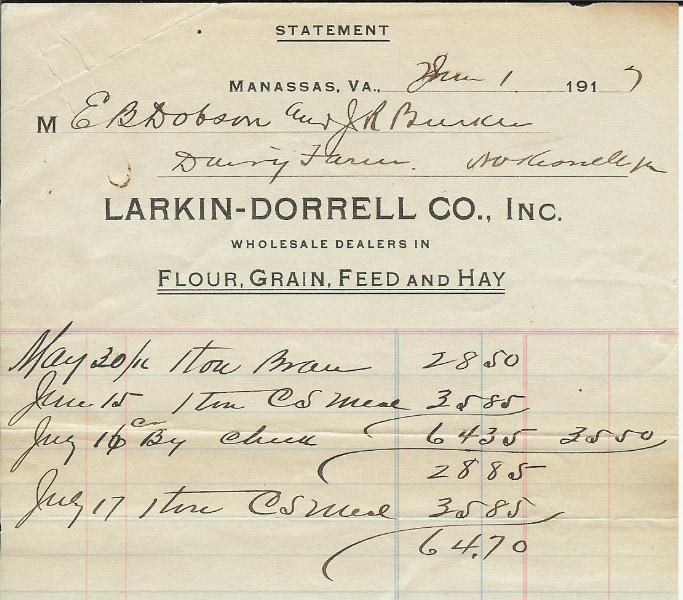 STATEMENT
MANASSAS, VA., Jun 1 1917
M E B Dobson and J R Burke
Dairy Farm.
LARKIN-DORRELL CO., INC.
WHOLESALE DEALERS IN
FLOUR, GRAIN, FEED AND HAY
May 30/16 1 ton Bran 28 50
June 15 1 ton C S Meal 35 85
July 16 Cr By check 64 35 35 50
28 85
July 17 1 ton C S Meal 35 85
64.70